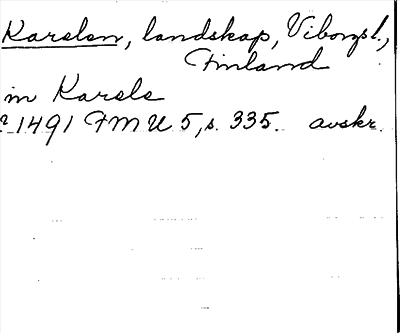 Karelen, landskap, Viborgs l.,
Finland
in Karele
1491 FMU 5, s. 335. avskr.